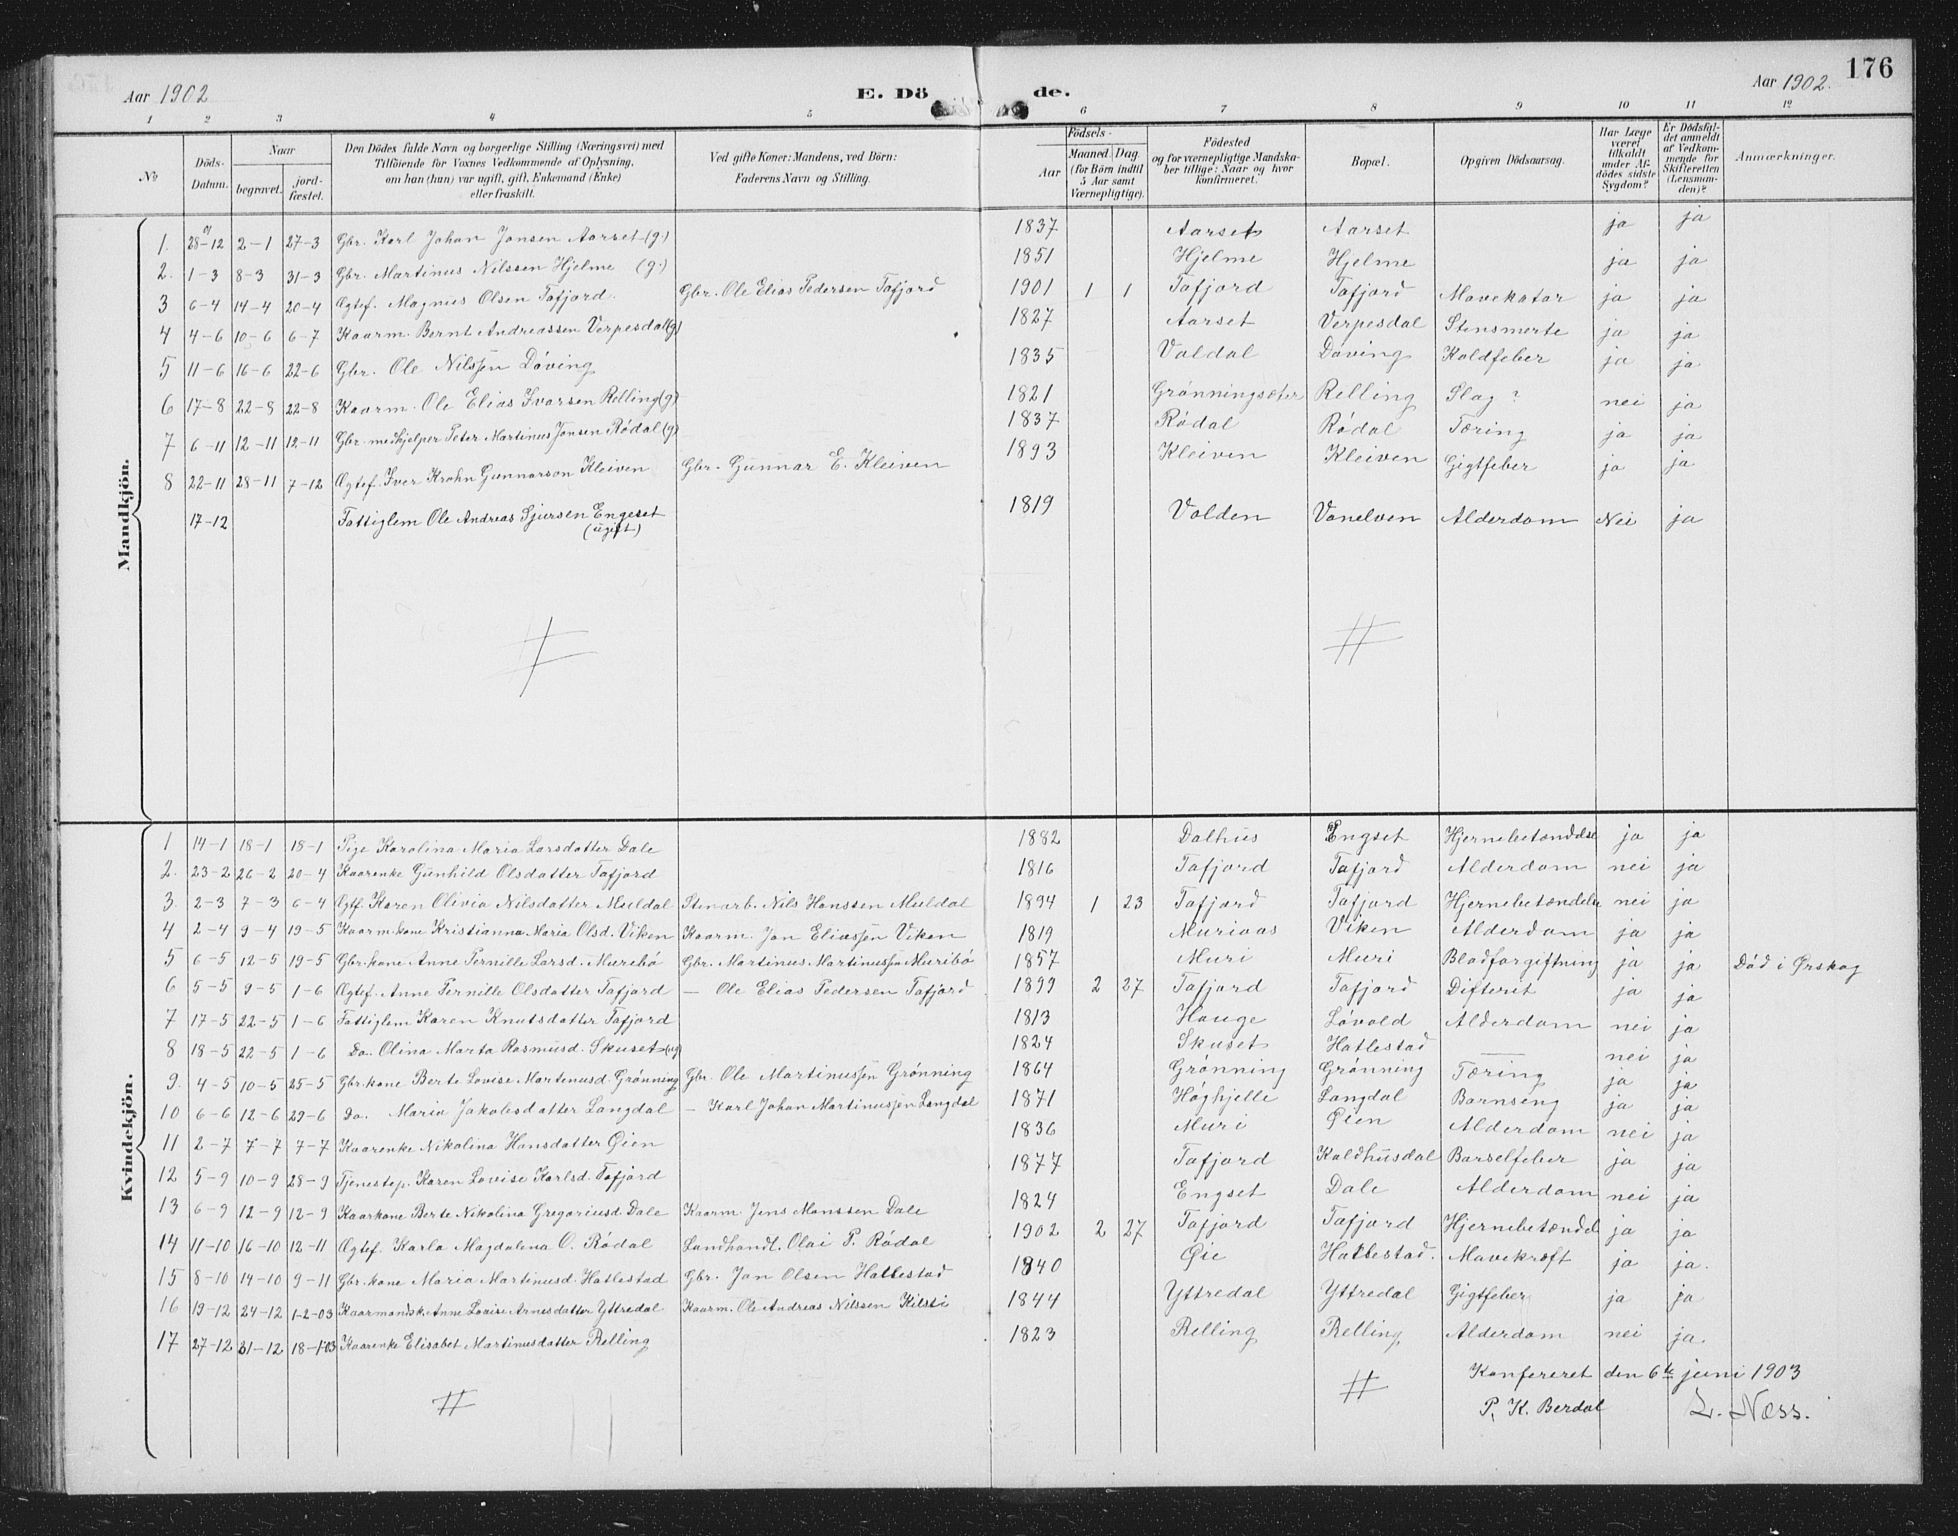 Aar 1902
E. Döde.
Aar 1902.
176
1 2 3 4 5 6 7 8 9 10 11 12
No
Döds-Datum.
Naar
begravet.
jord-fæstet.
Den Dödes fulde Navn og borgerlige Stilling (Næringsvei) med
Tilföiende for Voxnes Vedkommende af Oplysning,
om han (hun) var ugift, gift, Enkemand (Enke)
eller fraskilt.
Ved gifte Koner: Mandens, ved Börn:
Faderens Navn og Stilling.
Födsels-
Aar
Maaned. Dag.
(for Börn indtil
5 Aar samt
Værnepligtige).
Födested
og for værnepligtige Mandska-
ber tillige: Naar og hvor
konfirmeret.
Bopæl.
Opgiven Dödsaarsag.
Har Læge
været
tilkaldt
under Af-
dödes sidste
Sygdom?
Er Dödsfal-
det anmeldt
af Vedkom-
mende for
Skifteretten
(Lensman-
den)?
Anmærkninger.
Mandkjön.
1. 28-12 2-1 27-3 Gbr. Karl Johan Jonsen Aarset (g.) 1837 Aarset Aarset ja ja
2. 1-3 8-3 31-3 Gbr. Martinus Nilssen Hjelme (g.) 1851 Hjelme Hjelme ja ja
3 6-4 14-4 20-4 Ægtef. Magnus Olsen Tafjord. Gbr. Ole Elias Pedersen Tafjord 1901 1 1 Tafjord Tafjord Mavekatar ja ja
4 4-6 10-6 6-7 Kaarm. Bernt Andreassen Verpesdal (g) 1827 Aarset Verpesdal Stensmerte ja ja
5 11-6 16-6 22-6 Gbr. Ole Nilssen Döving 1835 Valdal Döving Koldfeber ja ja
6 17-8 22-8 22-8 Kaarm. Ole Elias Ivarsen Relling (g) 1821 Grønningsæter Relling Slag? nei ja
7 6-11 12-11 12-11 Gbr. medhjelper Peter Martinus Jonsen Rödal (g) 1837 Rødal Rödal Tæring ja ja
8 22-11 28-11 7-12 Ægtef. Iver Krohn Gunnarson Kleiven Gbr. Gunnar E. Kleiven 1893 Kleiven Kleiven Gigtfeber ja ja
17-12 Fattiglem Ole Andreas Sjursen Engeset (ugift) 1819 Volden Vanelven Alderdom Nei ja
Kvindekjön.
1 14-1 18-1 18-1 Pige Karolina Maria Larsdatter Dale 1882 Dalhus Engset Hjernebetændelse ja ja
2. 23-2 26-2 20-4 Kaarenke Gunhild Olsdatter Tafjord 1816 Tafjord Tafjord Alderdom nei ja
3. 2-3 7-3 6-4 Ægtf. Karen Olivia Nilsdatter Muldal Stenarb. Nils Hanssen Muldal 1894 1 23 Tafjord Tafjord Hjernebetændelse nei ja
4 2-4 9-4 19-5 Kaarm.kone Kristianna Maria Olsd. Viken Kaarm. Jon Eliassen Viken 1819 Muriaas Viken Alderdom ja ja
5 6-5 12-5 19-5 Gbr.kone Anne Pernille Larsd. Muribö Gbr. Martinus Martinussen Muribö 1857 Muri Muri Blodforgiftning ja ja Död i Ørskog
6 5-5 9-5 1-6 Ægtef. Anne Pernille Olsdatter Tafjord — Ole Elias Pedersen Tafjord 1899 2 27 Tafjord Tafjord Difterit ja ja
7 17-5 22-5 1-6 Fattiglem Karen Knutsdatter Tafjord 1813 Hauge Lövold Alderdom nei ja
8 18-5 22-5 1-6 Do. Olina Marta Rasmusd. Skuset (ug) 1824 Skuset Hatlestad — nei ja
9. 4-5 10-5 25-5 Gbr.kone Berte Lovise Martenusd. Grønning Gbr. Ole Martinussen Grønning 1864 Grønning Grønning Tæring ja ja
10 6-6 12-6 29-6 Do. Maria Jakobsdatter Langdal — Karl Johan Martinussen Langdal 1871 Høghjelle Langdal Barnseng ja ja
11 2-7 7-7 7-7 Kaarenke Nikolina Hansdatter Øien 1836 Muri Øien Alderdom nei ja
12 5-9 10-9 28-9 Tjenestep. Karen Lovise Karlsd. Tafjord 1877 Tafjord Kaldhusdal Barselfeber ja ja
13 6-9 12-9 12-9 Kaarkone Berte Nikolina Gregoriusd. Dale Kaarm. Jens Monssen Dale 1824 Engset Dale Alderdom nei ja
14 11-10 16-10 12-11 Ægtef. Karla Magdalena O. Rödal Landhandl. Olai P. Rödal 1902 2 27 Tafjord Tafjord Hjernebetændel ja ja
15 8-10 14-10 9-11 Gbr.kone Maria Martinusd. Hatlestad Gbr. Jon Olsen Hatlestad 1840 Øie Hatlestad. Mavekræft ja ja.
16 19-12 24-12 1-2-03 Kaarmandsk. Anne Lovise Arnesdatter Yttredal Kaarm. Ole Andreas Nilssen Kilsti 1844 Yttredal Yttredal Gigtfeber ja ja
17 27-12 31-12 18-1-03 Kaarenke Elisabet Martinusdatter Relling 1823 Relling Relling Alderdom nei ja.
Konfereret den 6te juni 1903
P. K. Berdal L. Næss.